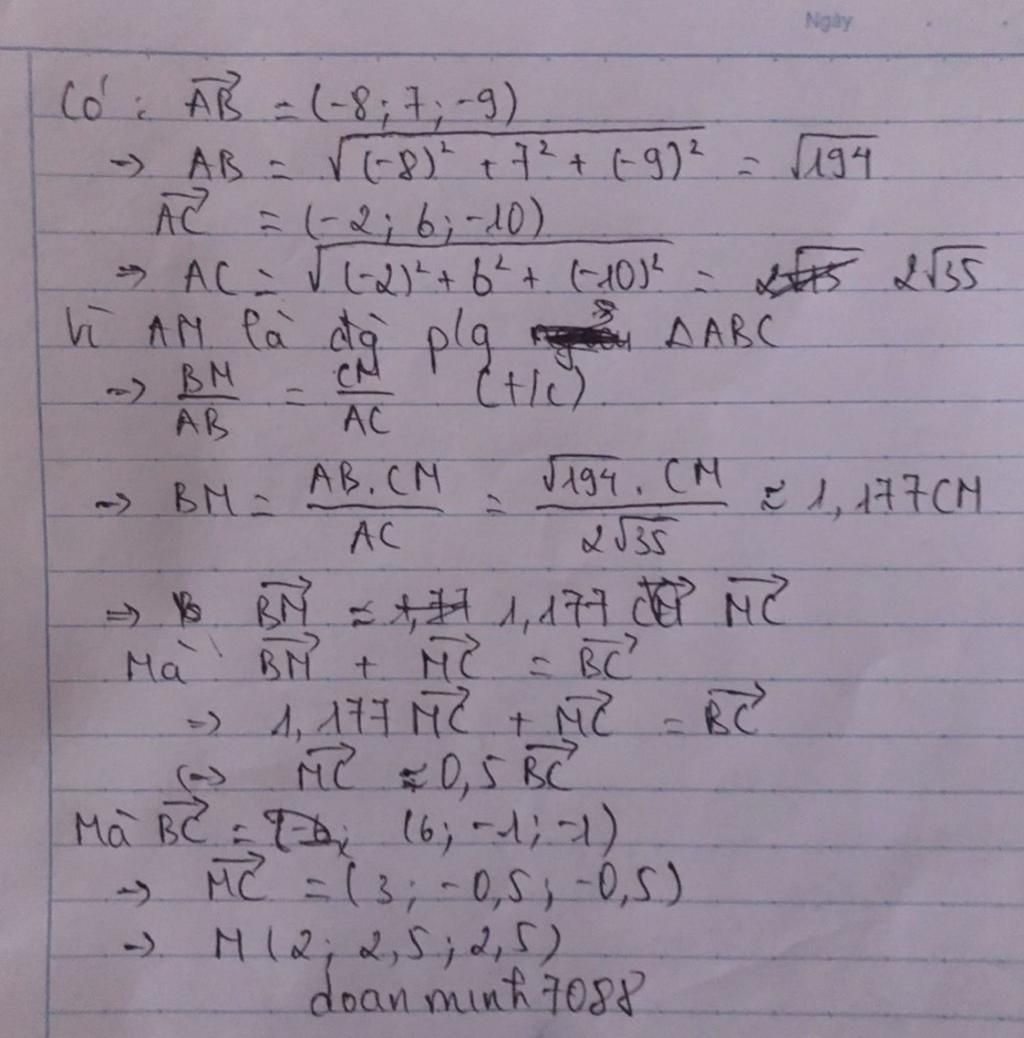 Ngày
Có : AB→ = (-8 ; 7 ; -9)
→ AB = √((-8)² + 7² + (-9)²) = √194
AC→ = (-2 ; 6 ; -10)
⇒ AC = √((-2)² + 6² + (-10)²) = 2√35
Vì AM là đg plg ΔABC
→ BM/AB = CM/AC (t/c)
→ BM = AB.CM/AC = √194 . CM/2√35 ≈ 1,177CM
⇒ BM→ ≈ 1,177 MC→
Mà BM→ + MC→ = BC→
⇒ 1,177 MC→ + MC→ = BC→
(⇒ MC→ ≈ 0,5 BC→
Mà BC→ = (6 ; -1 ; -1)
→ MC→ = (3 ; -0,5 ; -0,5)
→ M (2 ; 2,5 ; 2,5)
doan minh 7088